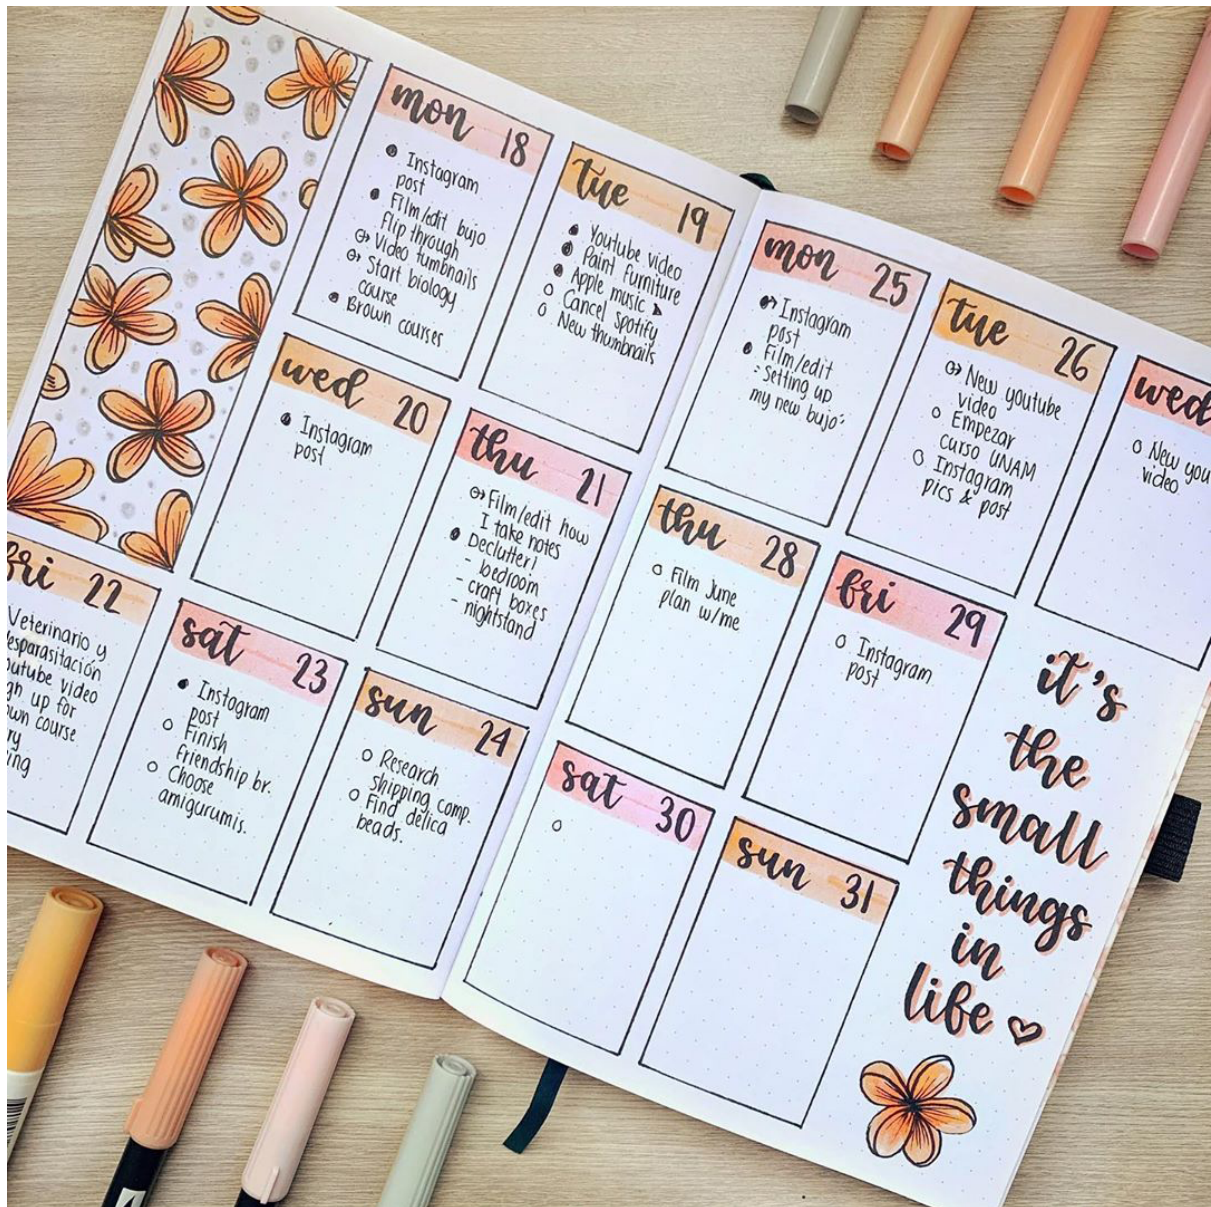 mon 18
Instagram
post
Film/edit bujo
flip through
Video tumbnails
Start biology
course
Brown courses
tue 19
Youtube video
Paint furniture
Apple music
Cancel Spotify
New thumbnails
wed 20
Instagram
post
thu 21
Film/edit how
I take notes
Declutter!
- bedroom
- craft boxes
- nightstand
fri 22
Veterinario y
desparasitación
youtube video
sign up for
own course
sat 23
Instagram
post
Finish
friendship br.
Choose
amigurumis.
sun 24
Research
shipping comp.
Find delica
beads.
mon 25
Instagram
post
Film/edit
"Setting up
my new bujo"
tue 26
New youtube
video
Empezar
curso UNAM
Instagram
pics & post
wed
New you
video
thu 28
Film June
plan w/me
fri 29
Instagram
post
sat 30
sun 31
it's
the
small
things
in
life